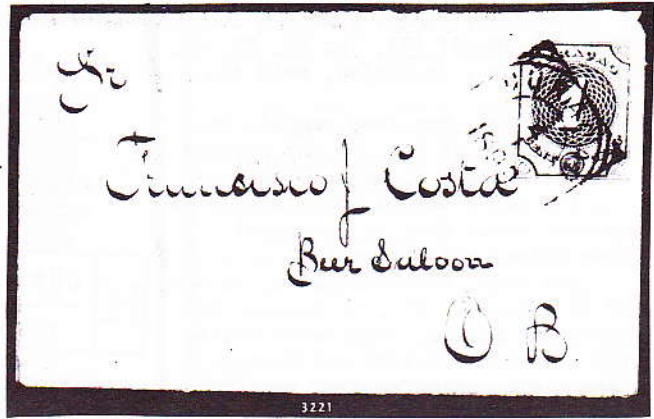 Sr
Francisco J Costa
Beer Saloon
O. B.
3221